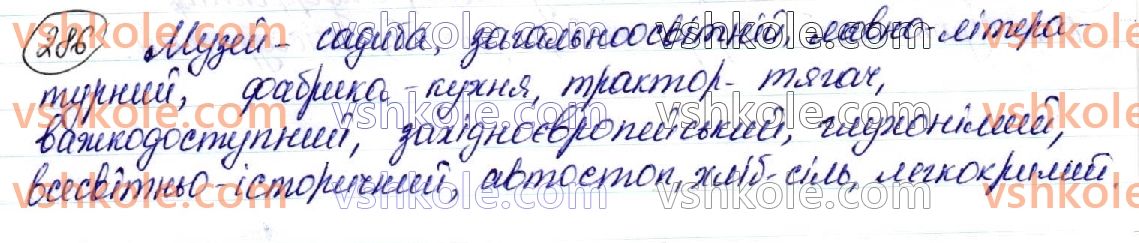 286 Музей-садиба, загальноосвітній, мовно-літера-
турний, фабрика-кухня, трактор-тягач,
важкодоступний, західноєвропейський, глухонімий,
всесвітньо-історичний, автостоп, хліб-сіль, легкокрилий.
vshkole.com
vshkole.com
vshkole.com
vshkole.com